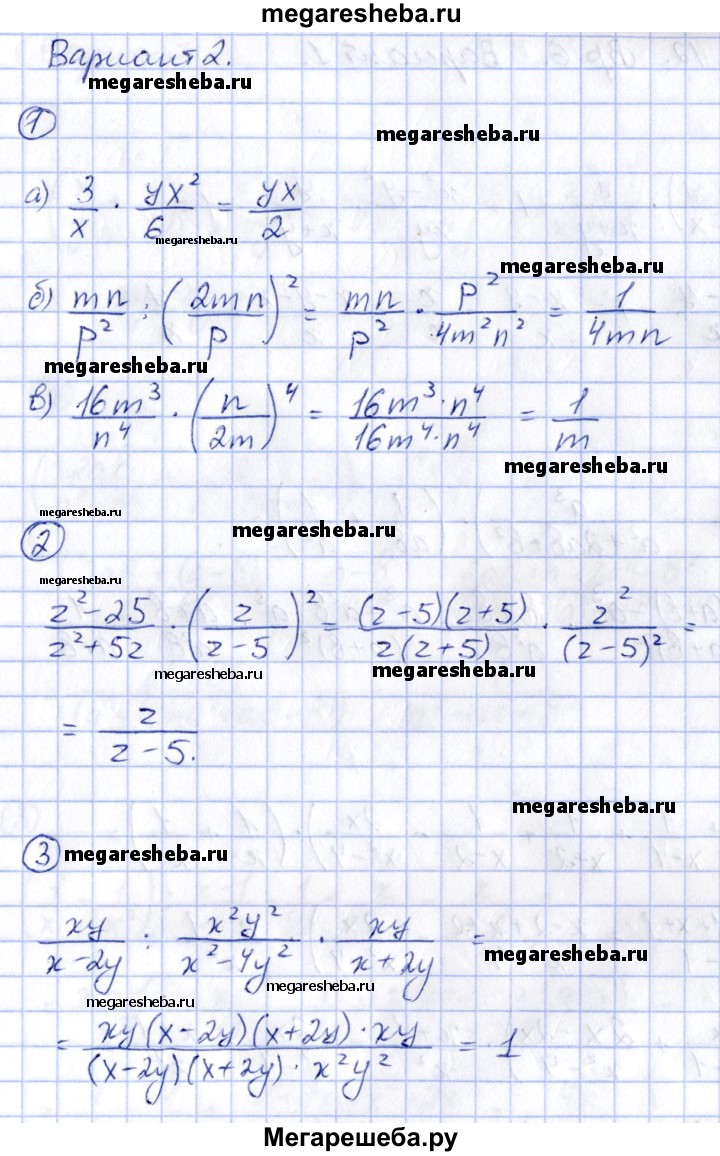 megaresheba.ru
Вариант 2.
megaresheba.ru
1
megaresheba.ru
а) 3/x · yx²/6 = yx/2
megaresheba.ru
megaresheba.ru
б) mn/p² : (2mn/p)² = mn/p² · p²/4m²n² = 1/4mn
megaresheba.ru
в) 16m³/n⁴ · (n/2m)⁴ = 16m³·n⁴/16m⁴·n⁴ = 1/m
megaresheba.ru
megaresheba.ru
2
megaresheba.ru
megaresheba.ru
z²-25/z²+5z · (z/z-5)² = (z-5)(z+5)/z(z+5) · z²/(z-5)² =
megaresheba.ru
megaresheba.ru
= z/z-5.
megaresheba.ru
3
megaresheba.ru
xy/x-2y : x²y²/x²-4y² · xy/x+2y =
megaresheba.ru
megaresheba.ru
megaresheba.ru
= xy(x-2y)(x+2y)·xy/(x-2y)(x+2y)·x²y² = 1
megaresheba.ru
Мегарешеба.ру